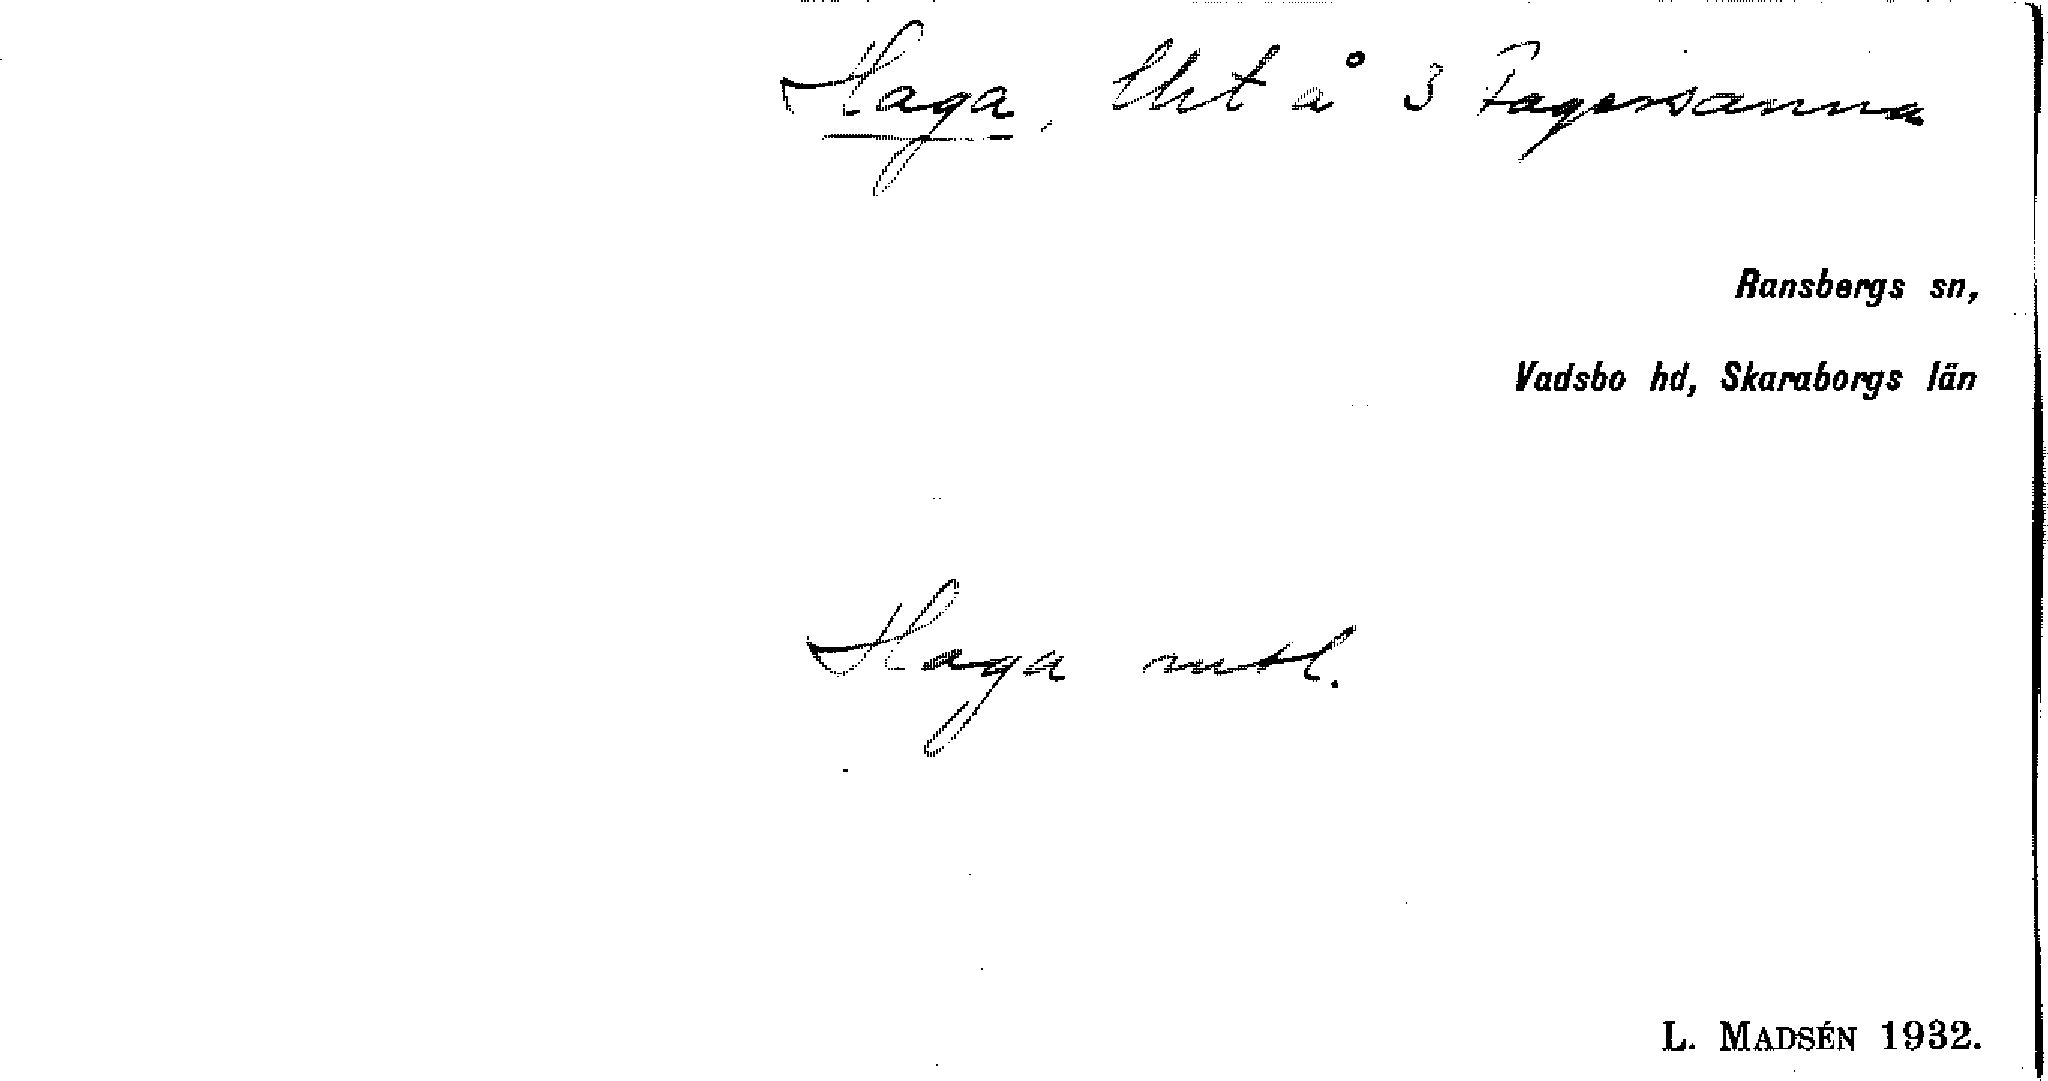 Haga, lht å 3 Fagersanna
Ransbergs sn,
Vadsbo hd, Skaraborgs län
Haga mtl.
L. MADSÉN 1932.